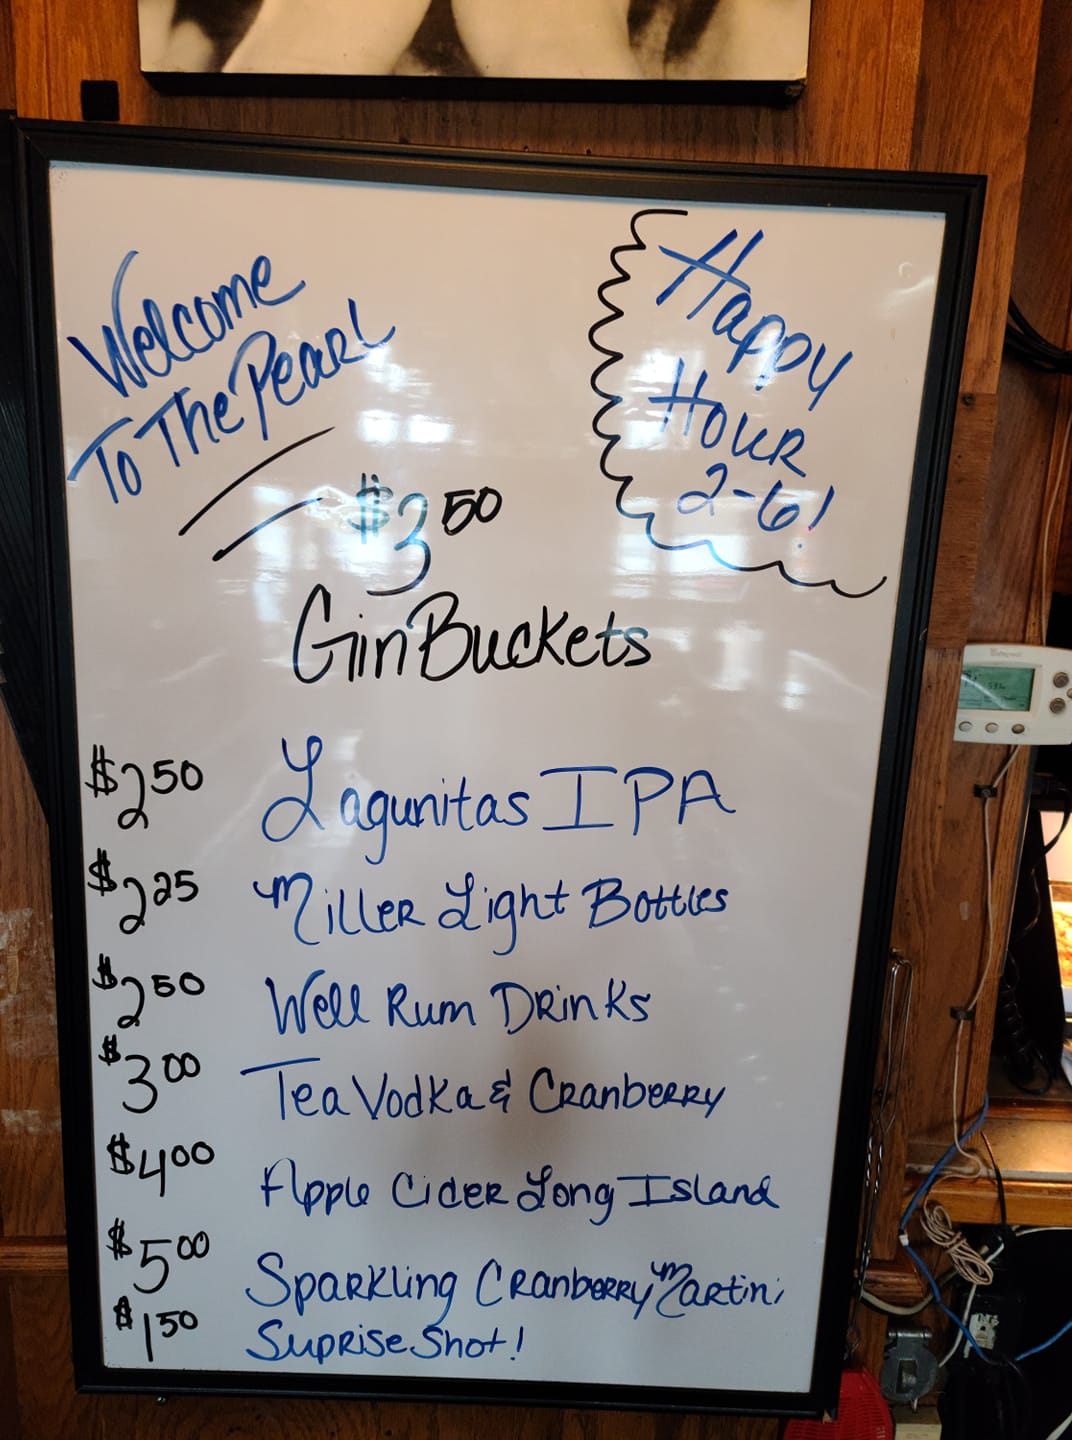 Welcome
To The Pearl
Happy
Hour
2-6!
$3.50
Gin Buckets
$2.50 Lagunitas IPA
$2.25 Miller Light Bottles
$2.50 Well Rum Drinks
$3.00 Tea Vodka & Cranberry
$4.00 Apple Cider Long Island
$5.00 Sparkling Cranberry Martini
$1.50 Suprise Shot!